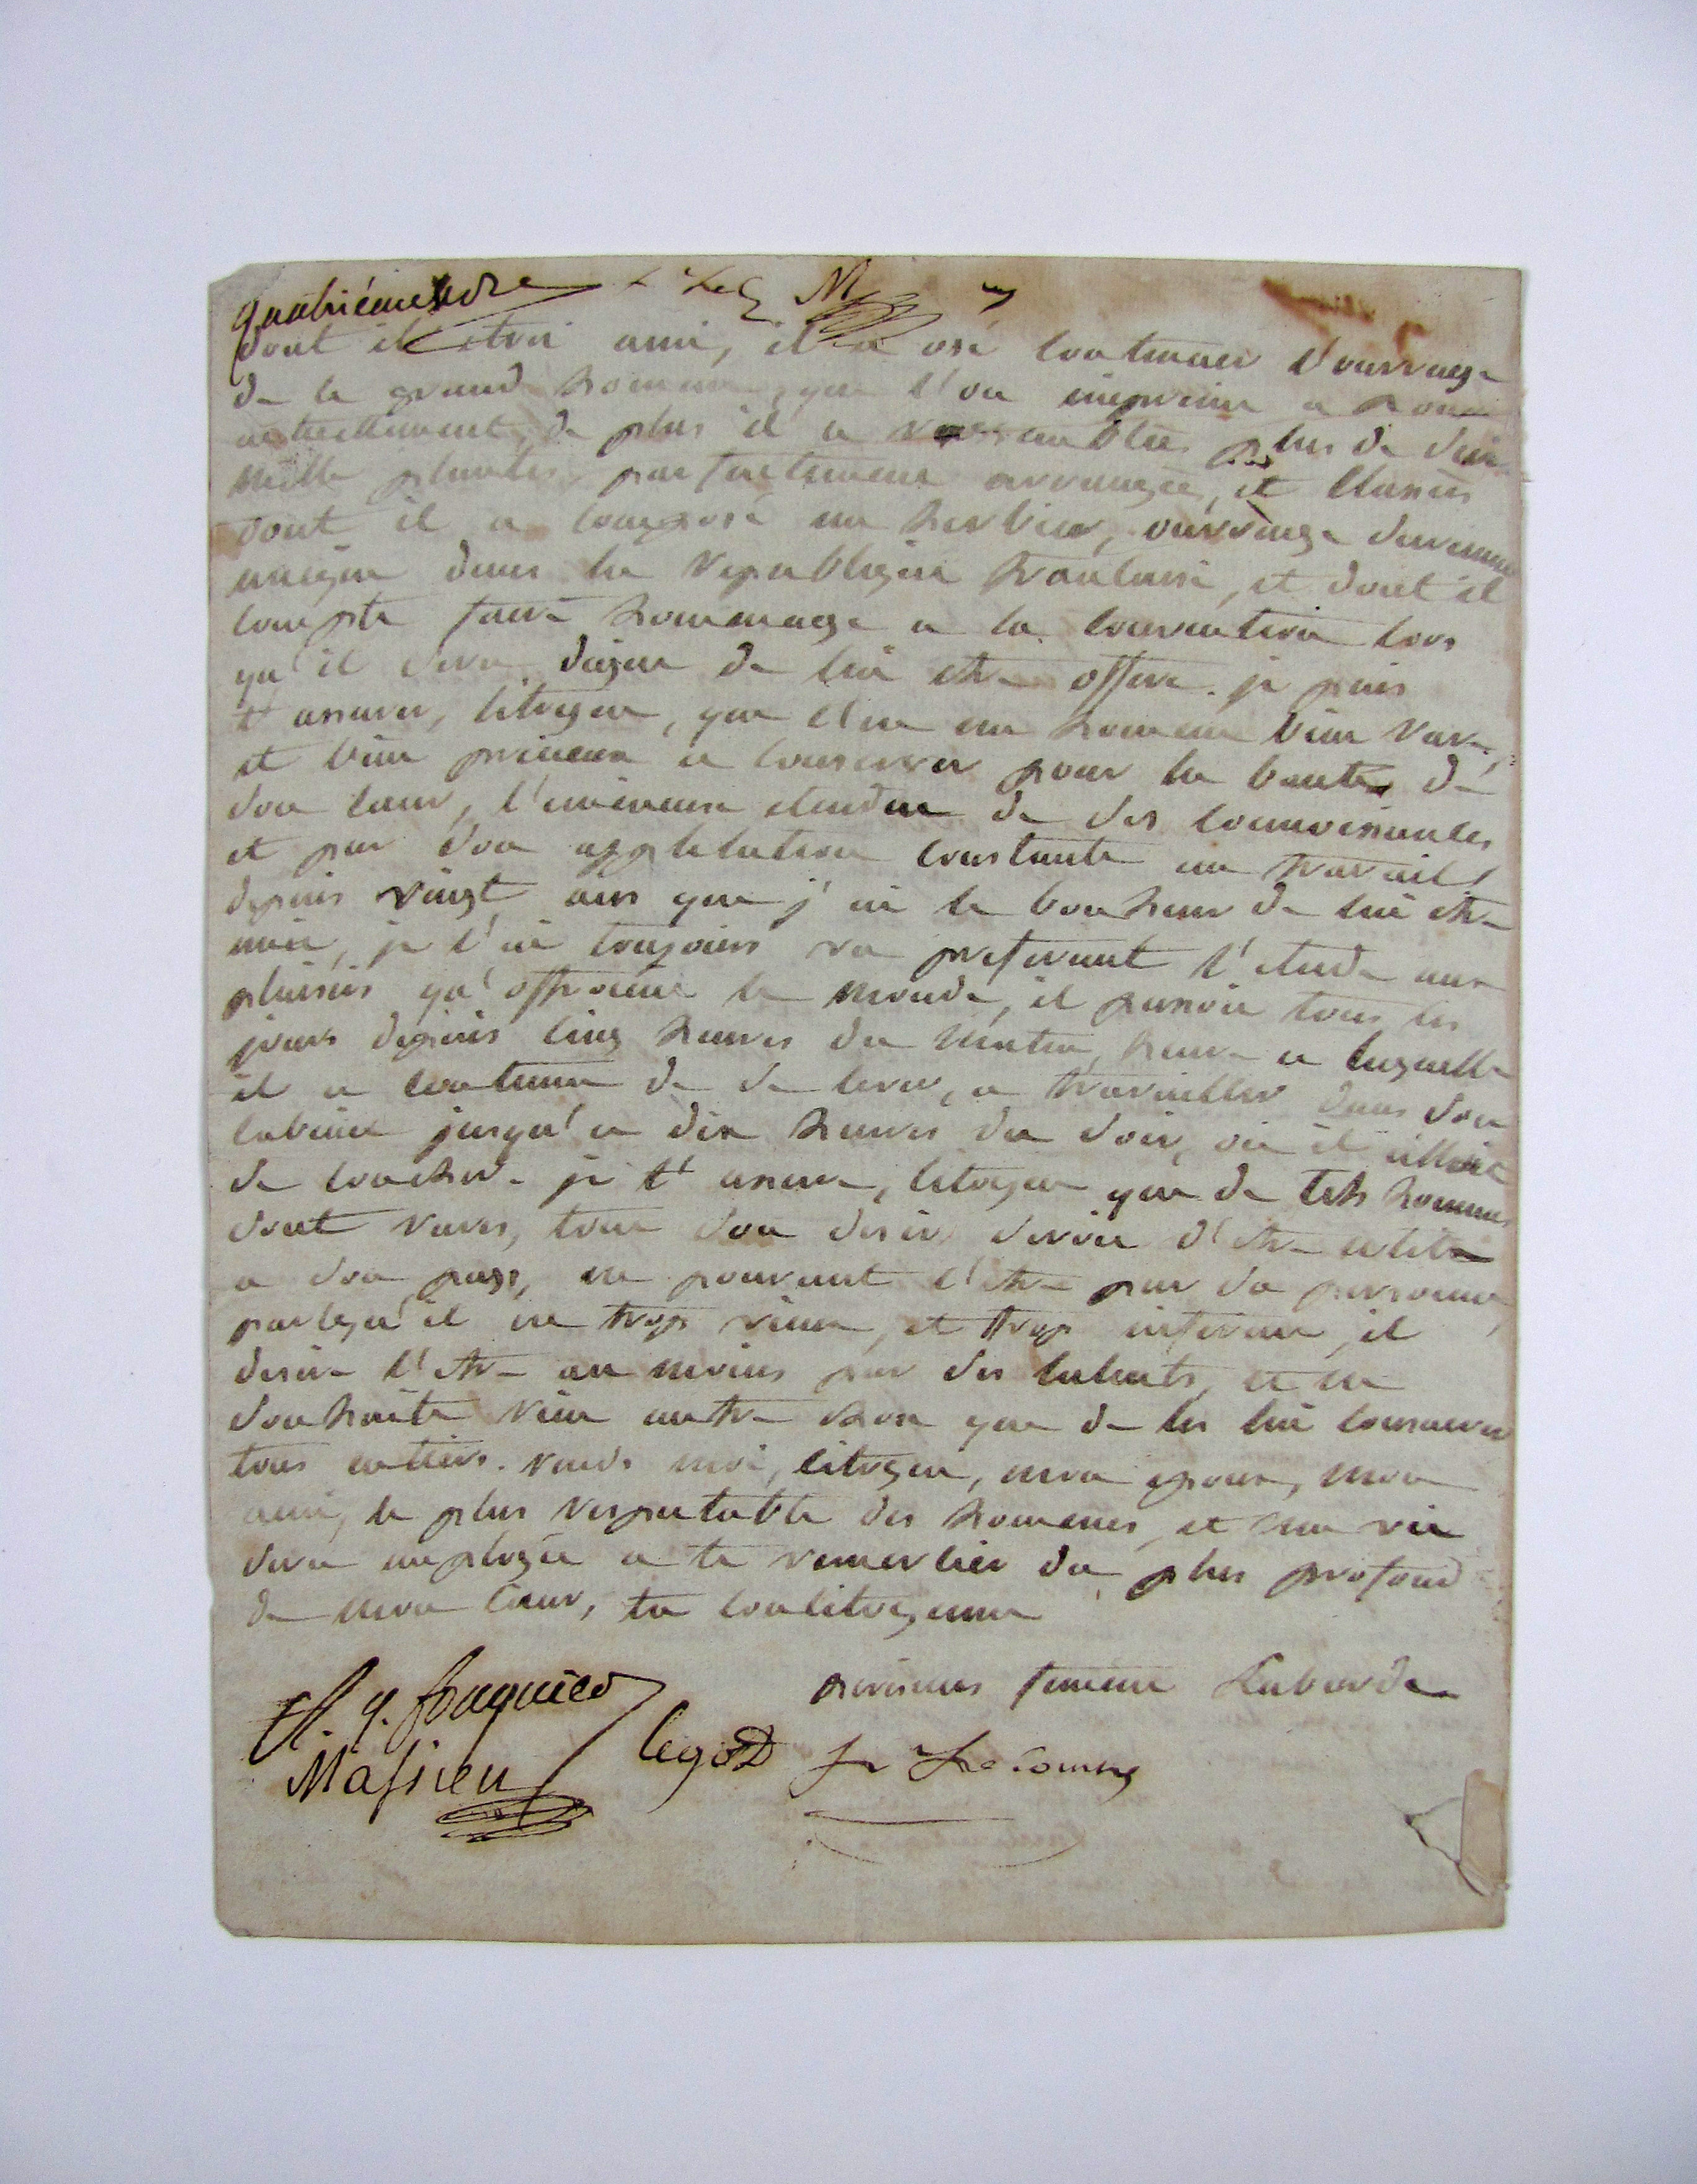 quatriéme
dont il etoi ami, il a osé continuer l'ouvrage
de ce grand homme, que l'on imprime a
actuellement, de plus il a rassemblées plus de dix
mille plantes parfaitement arrangées, et classées
dont il a composé un herbier, ouvrage devenu
unique dans la republique francaise, et dont il
compte faire hommage a la convention lors
qu'il sera digne de lui etre offert. je puis
t'assurer, citoyen, que c'est un homme bien rare,
et bien precieux a conserver pour la bonté de
son cœur, l'immense etendue de ses connoissances
et par son applicateion constante au travail
depuis vingt ans que j'ai le bonheur de lui etre
unie, je l'ai toujours vu preferant l'etude aux
plaisirs qu'offroient le monde, il passoit tous les
jours depuis cinq heures du matin, heure a laquelle
il a coutume de se lever, a travailler dans son
cabinet jusqu'a dix heures du soir, ou il alloit
se coucher. je t'assure, citoyen que de tels hommes
sont rares, tout son desir seroit d'etre utile
a son pays, ne pouvant l'etre par sa personne,
parcequ'il est trop vieux, et trop infirme, il
desire l'etre au moins par ses talents, et ne
souhaite rien autre chose que de les lui consacrer
tous entiers. rends moi, citoyen, mon epoux, mon
ami, le plus respectable des hommes, et ma vie
sera employée a te remercier du plus profond
de mon cœur, ta concitoyenne
femme Laborde
Massieu
legot